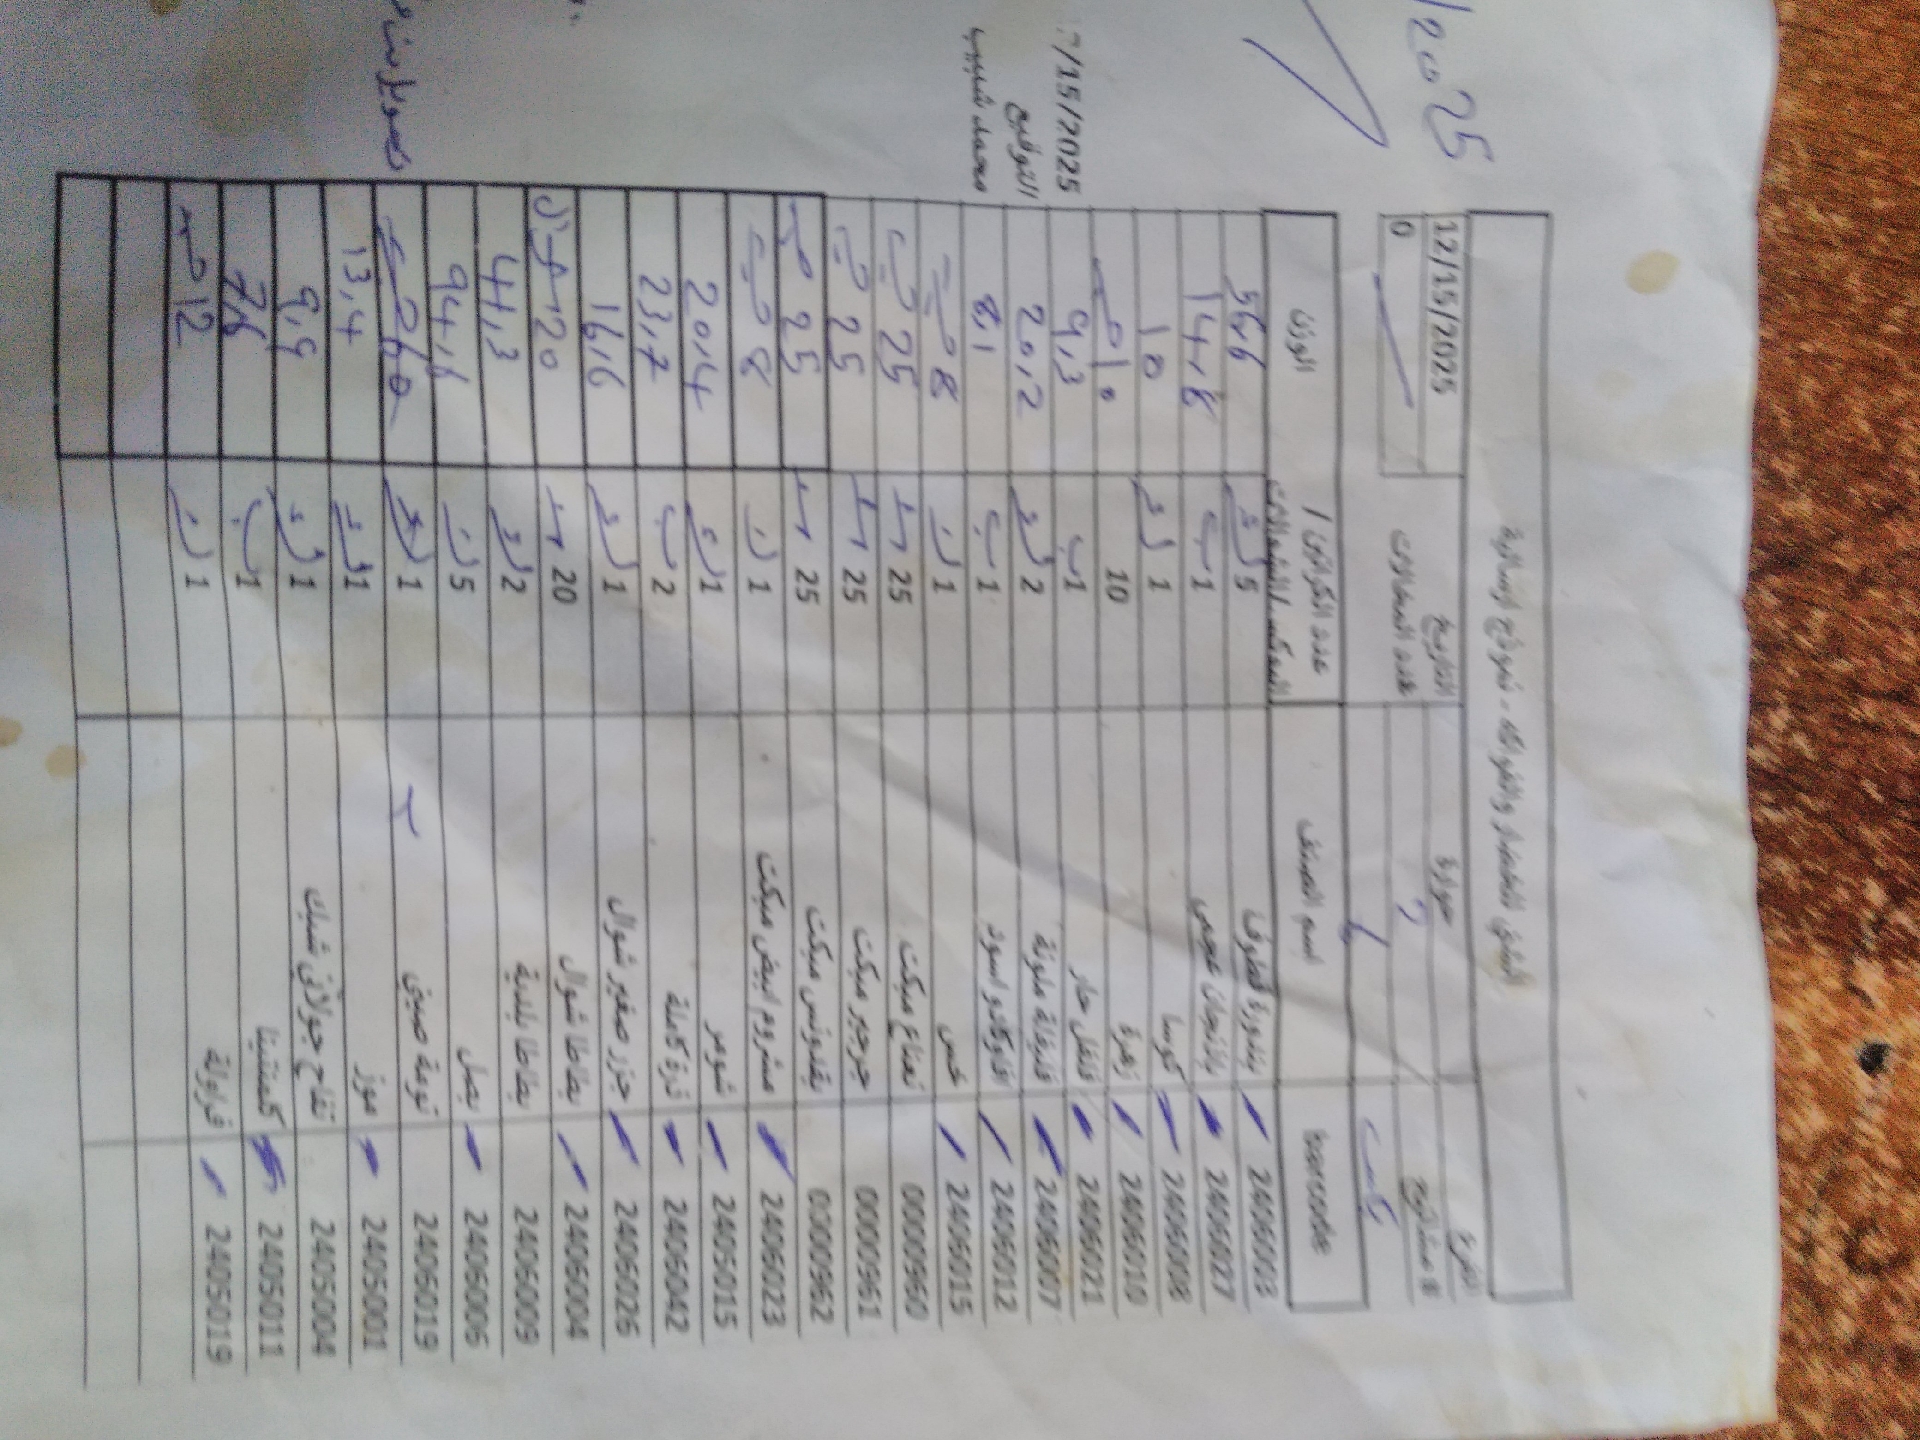 /2025
الشني للخضار والفواكه - نموذج ارسالية
الفرع حوارة التاريخ 12/15/2025
# مشترح عدد المشاطيح 0
barcode اسم الصنف عدد الكراتين / البكس/ الشوالات الوزن
24060003 بندورة قطوف 5 56,6
24060027 باذنجان عجمي 1 14,8
24060008 كوسا 1 10
24060010 زهرة 10 10
24060021 فلفل حار 1 9,3
24060007 فليفلة ملونة 2 20,2
24060012 افوكادو اسود 1 8.1
24060015 خس 1 8
00000960 نعناع مبكت 25 25
00000961 جرجير مبكت 25 25
00000962 بقدونس مبكت 25 25
24060023 مشروم ابيض مبكت 1 8
24050015 شومر 1 20,4
24060042 ذرة كاملة 2 23,7
24060026 جزر صغير شوال 1 16,6
24060004 بطاطا شوال 20 20 شوال
24060009 بطاطا بلدية 2 41,3
24060006 بصل 5 94,6
24060019 ثومة صيني 1
24050001 موز 1 13,4
24050004 تفاح جولاني شبك 1 9,9
24050011 كلمنتينا 1 76
24050019 فراولة 1 12
/15/2025
التوقيع
محمد شبيب